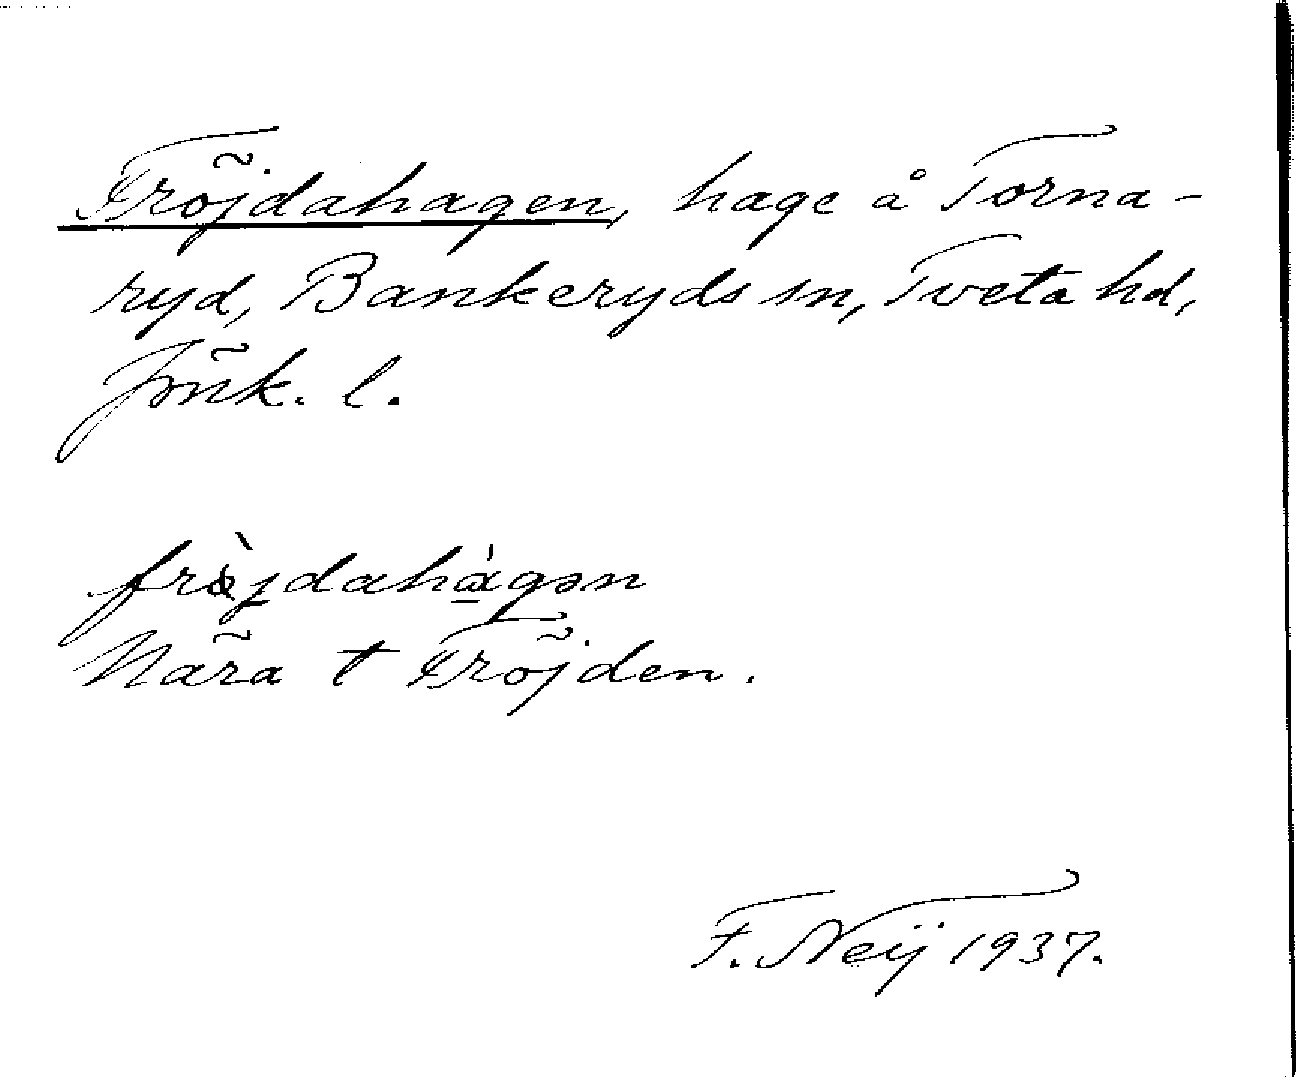 Fröjdahagen, hage å Torna-
ryd, Bankeryds sn, Tveta hd,
Jönk. l.
frö̀jdahàgən
Nära t Fröjden.
F. Neij 1937.